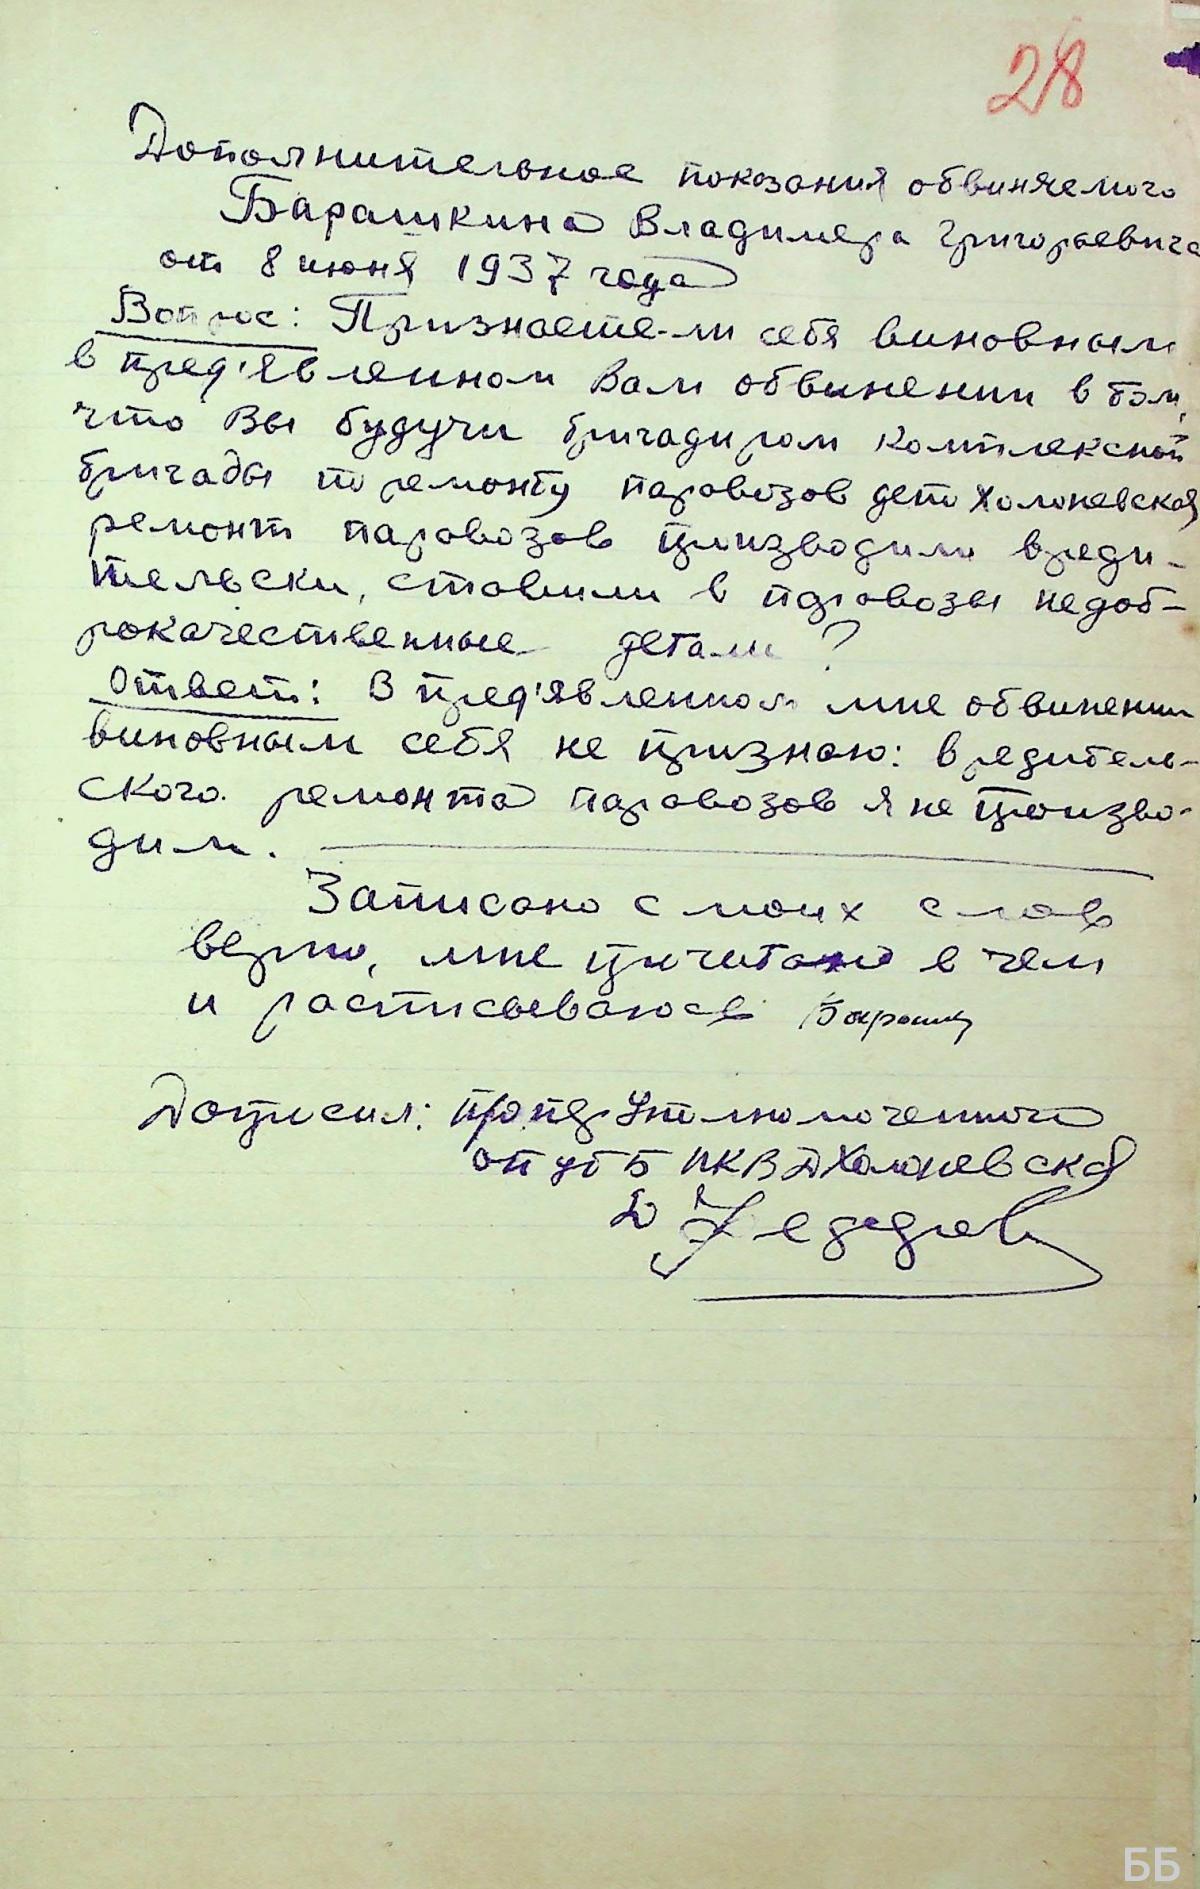 28
Дополнительное показания обвиняемого
Барашкина Владимера Григорьевича
от 8 июня 1937 года
Вопрос: Признаете-ли себя виновным
в пред'явленном Вам обвинении в том,
что Вы будучи бригадиром комплексной
бригады по ремонту паровозов депо Холоневская
ремонт паровозов производили вреди-
тельски, ставили в паровозы недоб-
рокачественные детали?
Ответ: В пред'явленном мне обвинении
виновным себя не признаю: вредитель-
ского ремонта паровозов я не произво-
дил.
Записано с моих слов
верно, мне прочитано в чем
и расписываюсь
Допросил: Уполномоченного
НКВД Холоневская
Федоров
ББ